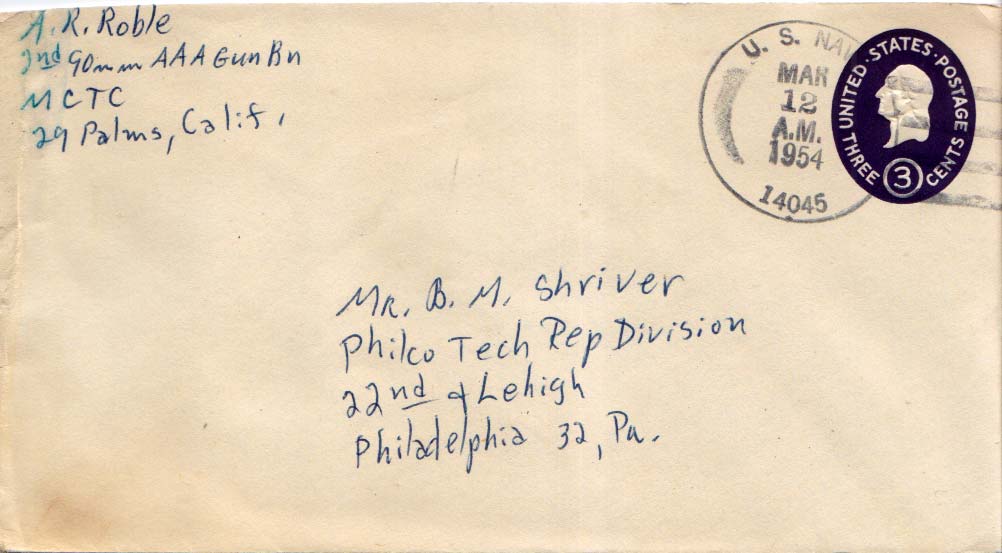 A. R. Roble
2nd 90mm AAA Gun Bn
MCTC
29 Palms, Calif.
U. S. NA
MAR
12
A.M.
1954
14045
UNITED · STATES · POSTAGE
THREE 3 CENTS
Mr. B. M. Shriver
Philco Tech Rep Division
22nd & Lehigh
Philadelphia 32, Pa.